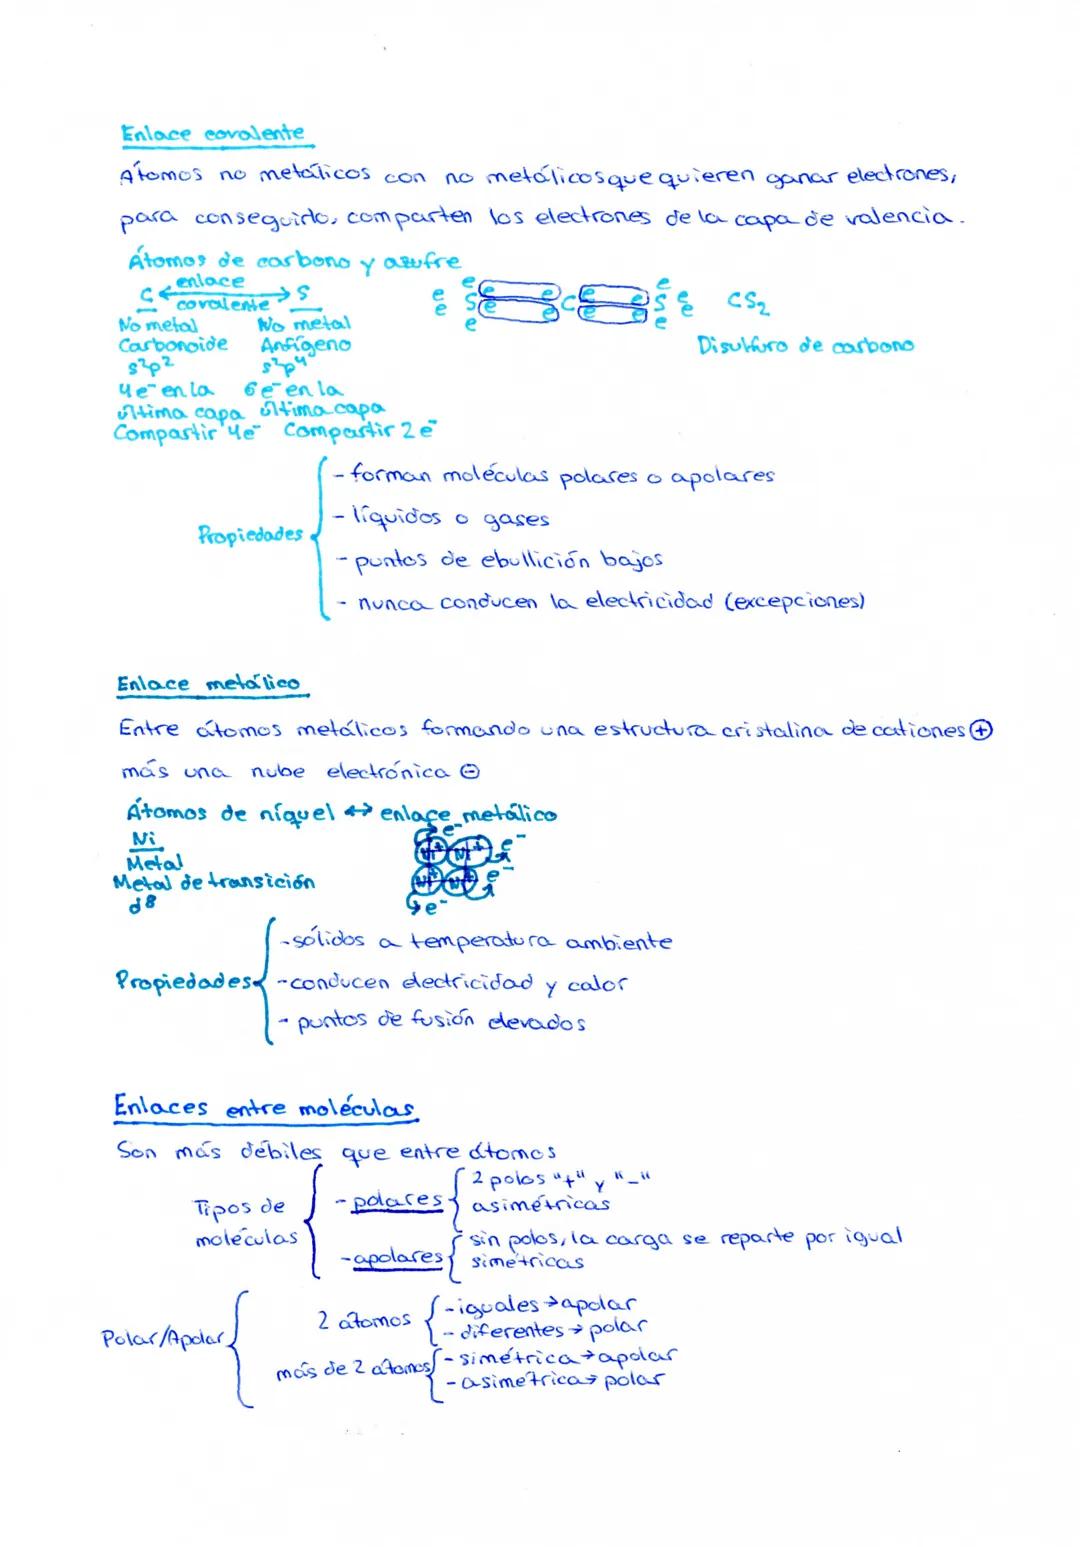 Enlace covalente
Átomos no metálicos con no metálicos que quieren ganar electrones,
para conseguirlo, comparten los electrones de la capa de valencia.
Átomos de carbono y azufre
enlace
C ↔ S
covalente
No metal No metal
Carbonoide Anfígeno
s²p² s²p⁴
4e⁻ en la 6e⁻ en la
última capa última capa
Compartir 4e⁻ Compartir 2e⁻
e e e e S e e e e C e e e e S e e e e CS₂
Disulfuro de carbono
Propiedades
- forman moléculas polares o apolares
- líquidos o gases
- puntos de ebullición bajos
- nunca conducen la electricidad (excepciones)
Enlace metálico
Entre átomos metálicos formando una estructura cristalina de cationes ⊕
más una nube electrónica ⊖
Átomos de níquel ↔ enlace metálico
Ni
Metal
Metal de transición
d8
e⁻
Ni⁺ Ni⁺ e⁻
Ni⁺ Ni⁺ e⁻
e⁻
Propiedades
- sólidos a temperatura ambiente
- conducen electricidad y calor
- puntos de fusión elevados
Enlaces entre moléculas
Son más débiles que entre átomos
Tipos de moléculas
- polares
2 polos "+" y "-"
asimétricas
- apolares
sin polos, la carga se reparte por igual
simétricas
Polar/Apolar
2 átomos
- iguales → apolar
- diferentes → polar
más de 2 átomos
- simétrica → apolar
- asimétrica → polar